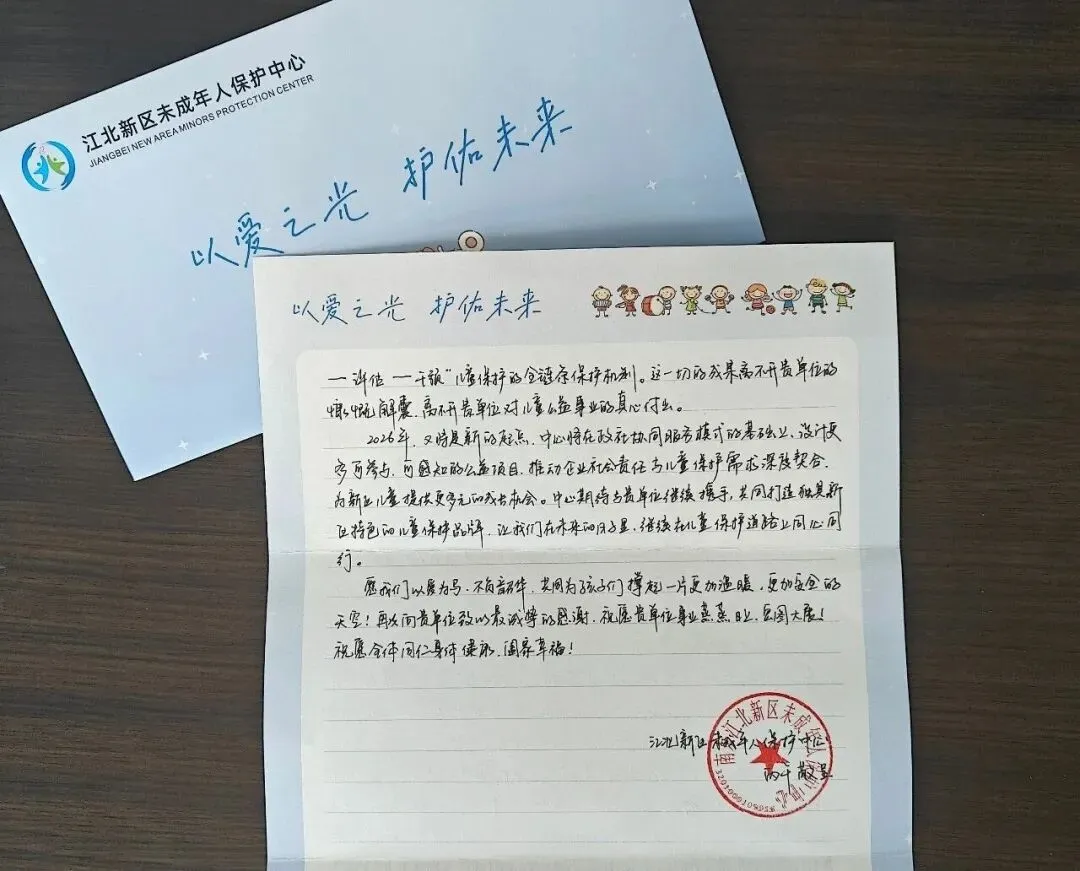 江北新区未成年人保护中心
JIANGBEI NEW AREA MINORS PROTECTION CENTER
以爱之光 护佑未来
以爱之光 护佑未来
一评估一干预”儿童保护的全链条保护机制。这一切的成果离不开贵单位的
慷慨解囊,离不开贵单位对儿童公益事业的真心付出。
2026年,又将是新的起点,中心将在政社协同服务模式的基础上,设计更
多可参与、可感知的公益项目,推动企业社会责任与儿童保护需求深度契合,
为新区儿童提供更多元的成长机会。中心期待与贵单位继续携手,共同打造独具新
区特色的儿童保护品牌,让我们在未来的日子里,继续在儿童保护道路上同心同
行。
愿我们以爱为马,不负韶华,共同为孩子们撑起一片更加温暖、更加安全的
天空!再次向贵单位致以最诚挚的感谢,祝愿贵单位事业蒸蒸日上,宏图大展!
祝愿全体同仁身体健康,阖家幸福!
江北新区未成年人保护中心
丙午敬呈